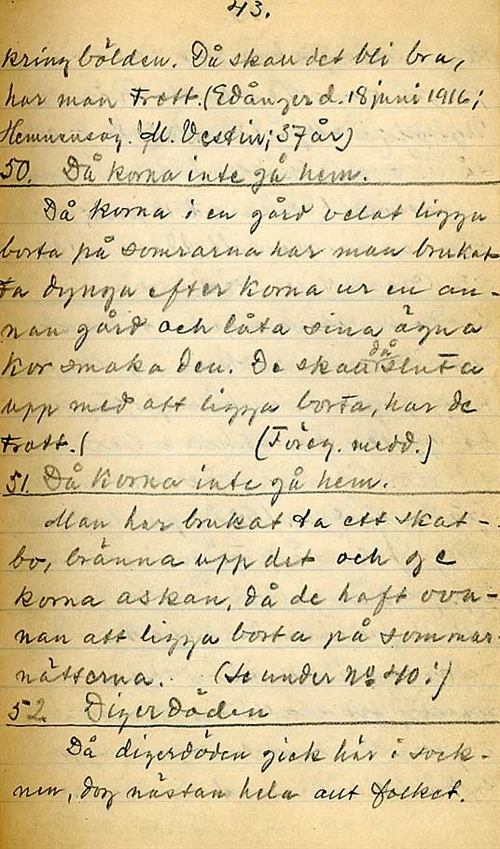 43.
kring bölden. Då skau det bli bra,
har man trott. (Edånger d. 18 juni 1916;
Hemmansäg. M. Vestin; 37 år)
50. Då korna inte gå hem.
Då korna i en gård velat ligga
borta på somrarna har man brukat
ta dynga efter korna ur en an-
nan gård och låta sina ägna
kor smaka den. De skau då sluta
upp med att ligga borta, har de
trott. ( (Föreg. medd.)
51. Då korna inte gå hem.
Man har brukat ta ett skat-
bo, bränna upp det och ge
korna askan, då de haft ova-
nan att ligga borta på sommar-
nätterna. (Se under No 40!)
52. Digerdöden
Då digerdöden gick här i sock-
nen, dog nästan hela aut folket.